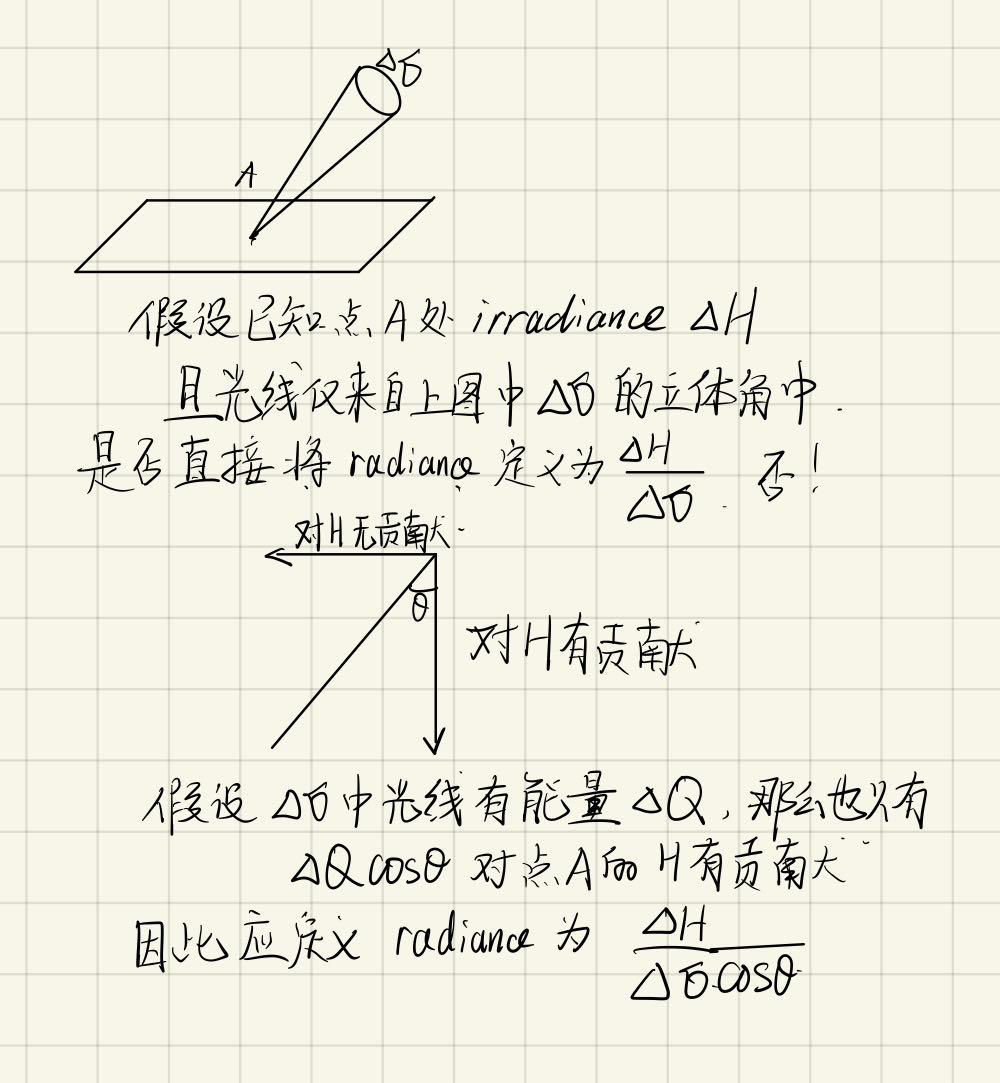 Δσ
A
假设已知点A处 irradiance ΔH
且光线仅来自上图中Δσ的立体角中.
是否直接将 radiance 定义为 ΔH/Δσ. 否!
对H无贡献.
θ
对H有贡献
假设Δσ中光线有能量ΔQ,那么也只有
ΔQcosθ 对点A的H有贡献
因此应定义 radiance 为 ΔH/Δσ·cosθ